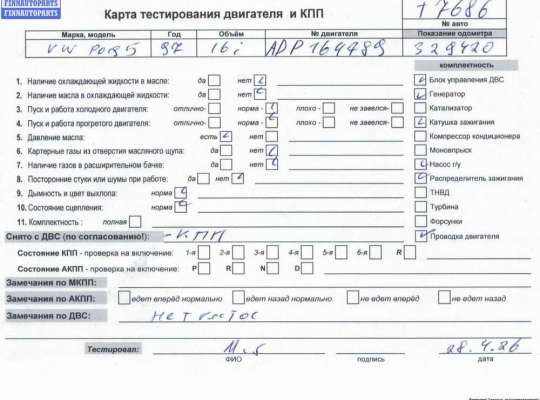 FINNAUTOPARTS
FINNAUTOPARTS
Карта тестирования двигателя и КПП
T7686
№ авто
Марка, модель Год Объём № двигателя Показание одометра
VW 97 16i ADP 329420
комплектность
1. Наличие охлаждающей жидкости в масле: да нет Блок управления ДВС
2. Наличие масла в охлаждающей жидкости: да нет Генератор
3. Пуск и работа холодного двигателя: отлично- норма - плохо - не завелся- Катализатор
4. Пуск и работа прогретого двигателя: отлично- норма - плохо - не завелся- Катушка зажигания
5. Давление масла: есть нет Компрессор кондиционера
6. Картерные газы из отверстия масляного щупа: да нет Моновпрыск
7. Наличие газов в расширительном бачке: да нет Насос г/у
8. Посторонние стуки или шумы при работе: да нет Распределитель зажигания
9. Дымность и цвет выхлопа: норма ТНВД
10. Состояние сцепления: норма Турбина
11. Комплектность : полная Форсунки
Снято с ДВС (по согласованию!): - КПП Проводка двигателя
Состояние КПП - проверка на включение: 1-я 2-я 3-я 4-я 5-я 6-я R
Состояние АКПП - проверка на включение: P R N D
Замечания по МКПП:
Замечания по АКПП: едет вперёд нормально едет назад нормально не едет вперёд не едет назад
Замечания по ДВС: нет
Тестировал: 28.4.26
ФИО подпись дата